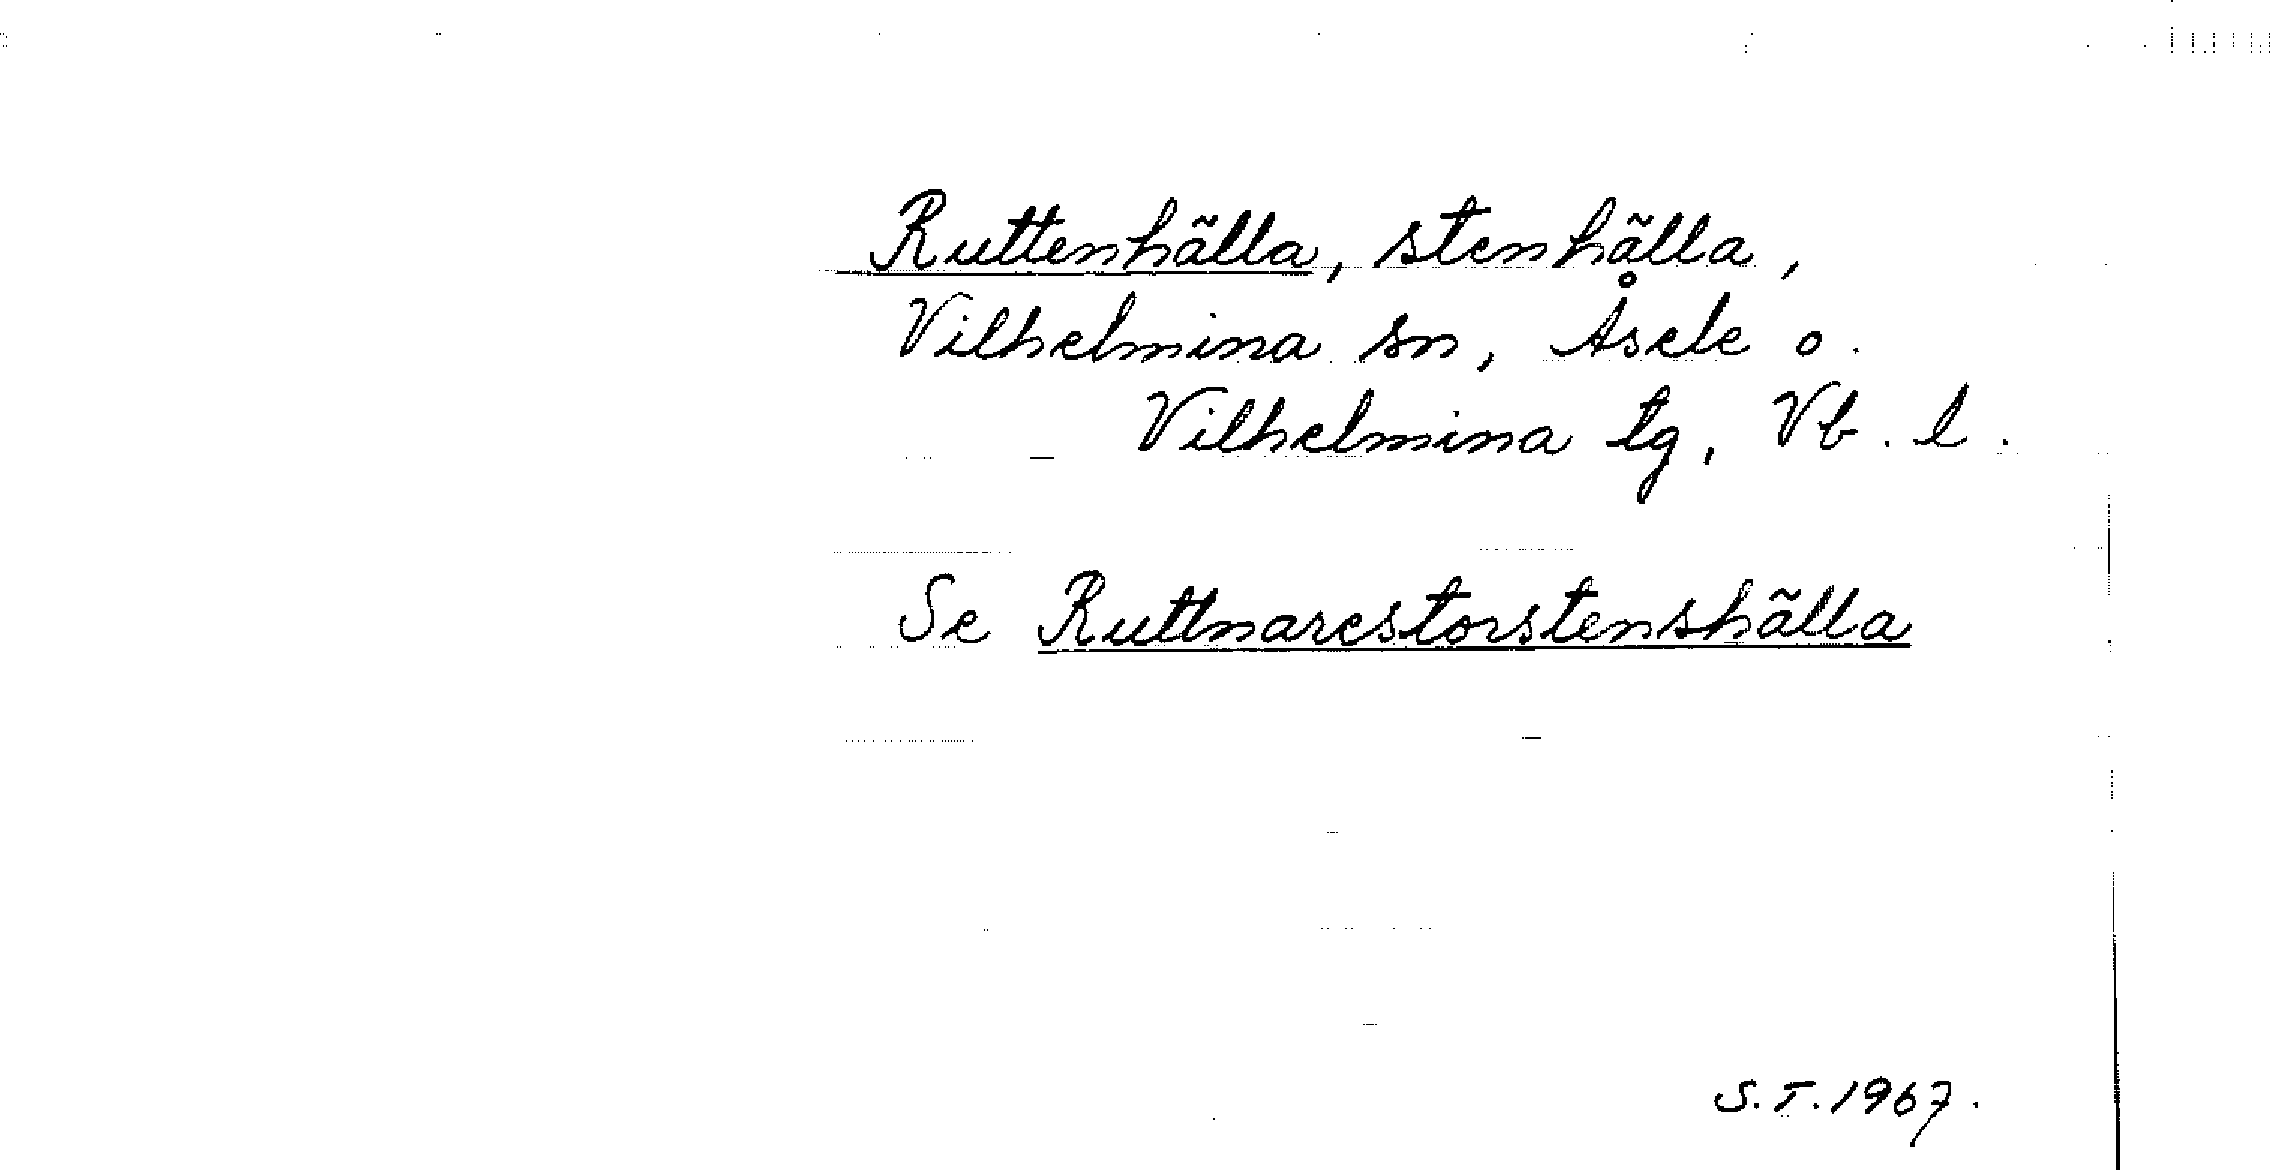 Ruttenhälla, stenhälla,
Vilhelmina sn, Åsele o.
Vilhelmina tg, Vb. l.
Se Ruttnarestorstenshälla
S.T. 1967.